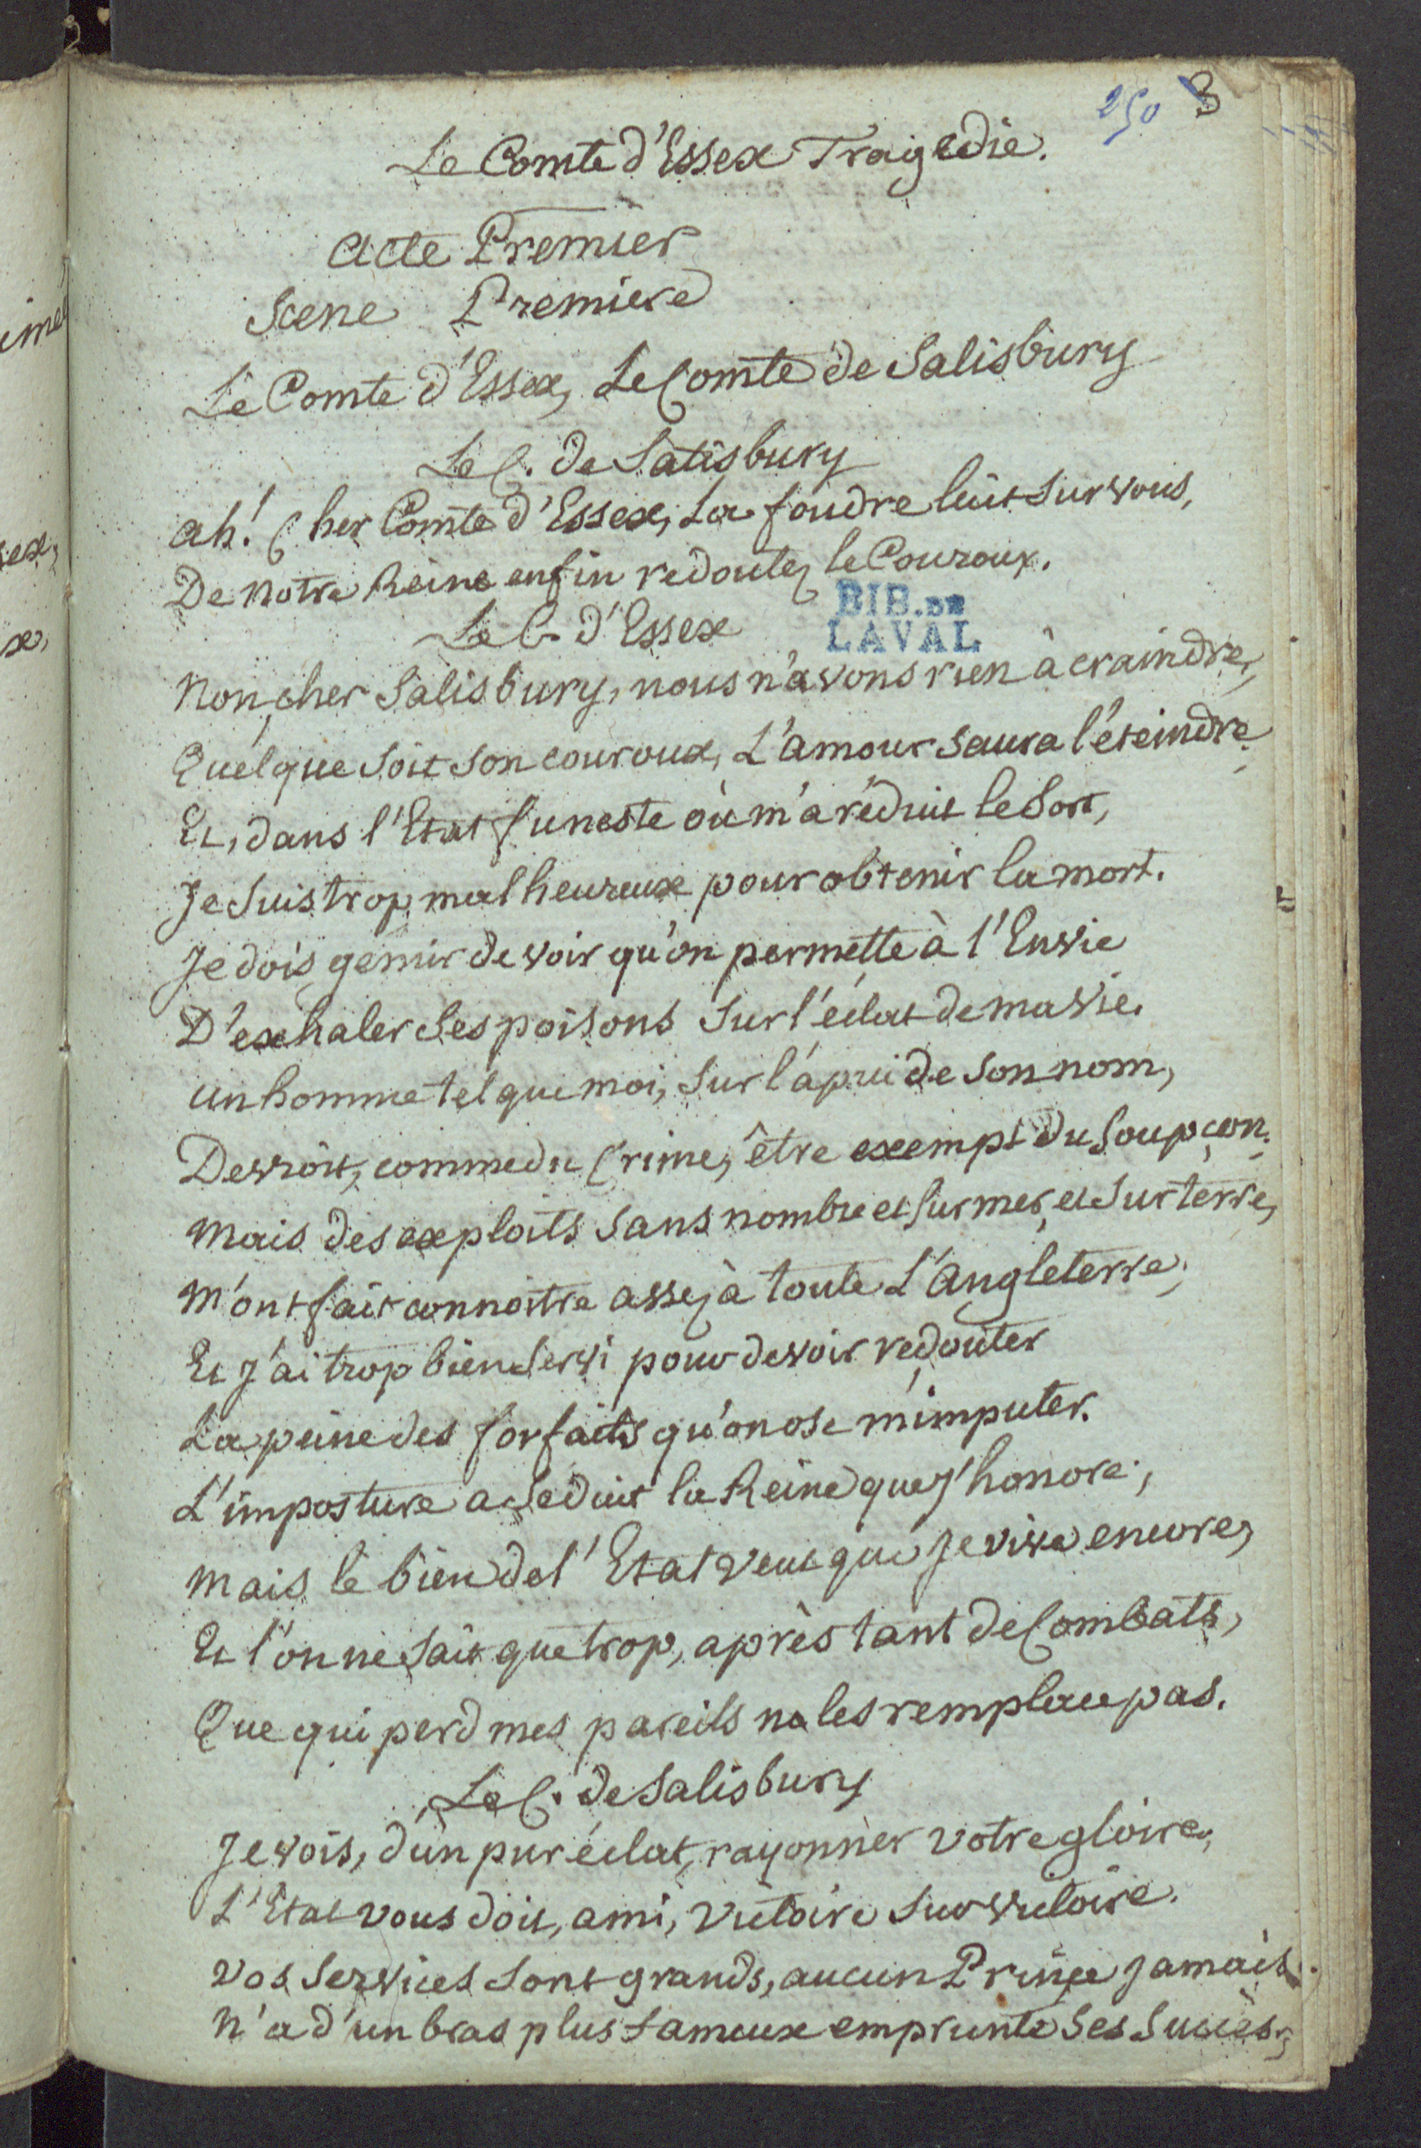 250 3
Le Comte d'Essex Tragedie.
Acte Premier
Scene Premiere
Le Comte d'Essex, Le Comte de Salisbury
Le C. de Salisbury
Ah! Cher Comte d'Essex, La foudre luit sur vous,
De Notre Reine enfin redoutez le Couroux.
Le C. d'Essex
BIB. DE
LAVAL
Non, cher Salisbury, nous n'avons rien à craindre,
Quel que soit son couroux, L'amour saura l'éteindre;
Et, dans l'Etat funeste où m'a réduit le Sort,
Je Suis trop malheureux pour obtenir la mort.
Je dois gemir de voir qu'on permette à l'Envie
D'exhaler Ses poisons Sur l'éclat de ma vie.
Un homme tel que moi, Sur l'apui de Son nom,
Devroit, comme du Crime, être exempt du Soupçon.
Mais des exploits Sans nombre et Sur mer, et Sur terre,
M'ont fait connoitre assez à toute L'Angleterre;
Et J'ai trop bien Servi pour devoir redouter
La peine des forfaits qu'on ose m'imputer.
L'imposture a Seduit la Reine que J'honore;
Mais le bien de l'Etat veut que Je vive encore,
Et l'on ne Sait que trop, après tant de Combats,
Que qui perd mes pareils ne les remplace pas.
Le C. de Salisbury
Je vois, d'un pur éclat, rayonner votre gloire,
L'Etat vous doit, ami, Victoire Sur victoire.
Vos Services Sont grands, aucun Prince jamais
N'a d'un bras plus fameux emprunté Ses Succès;